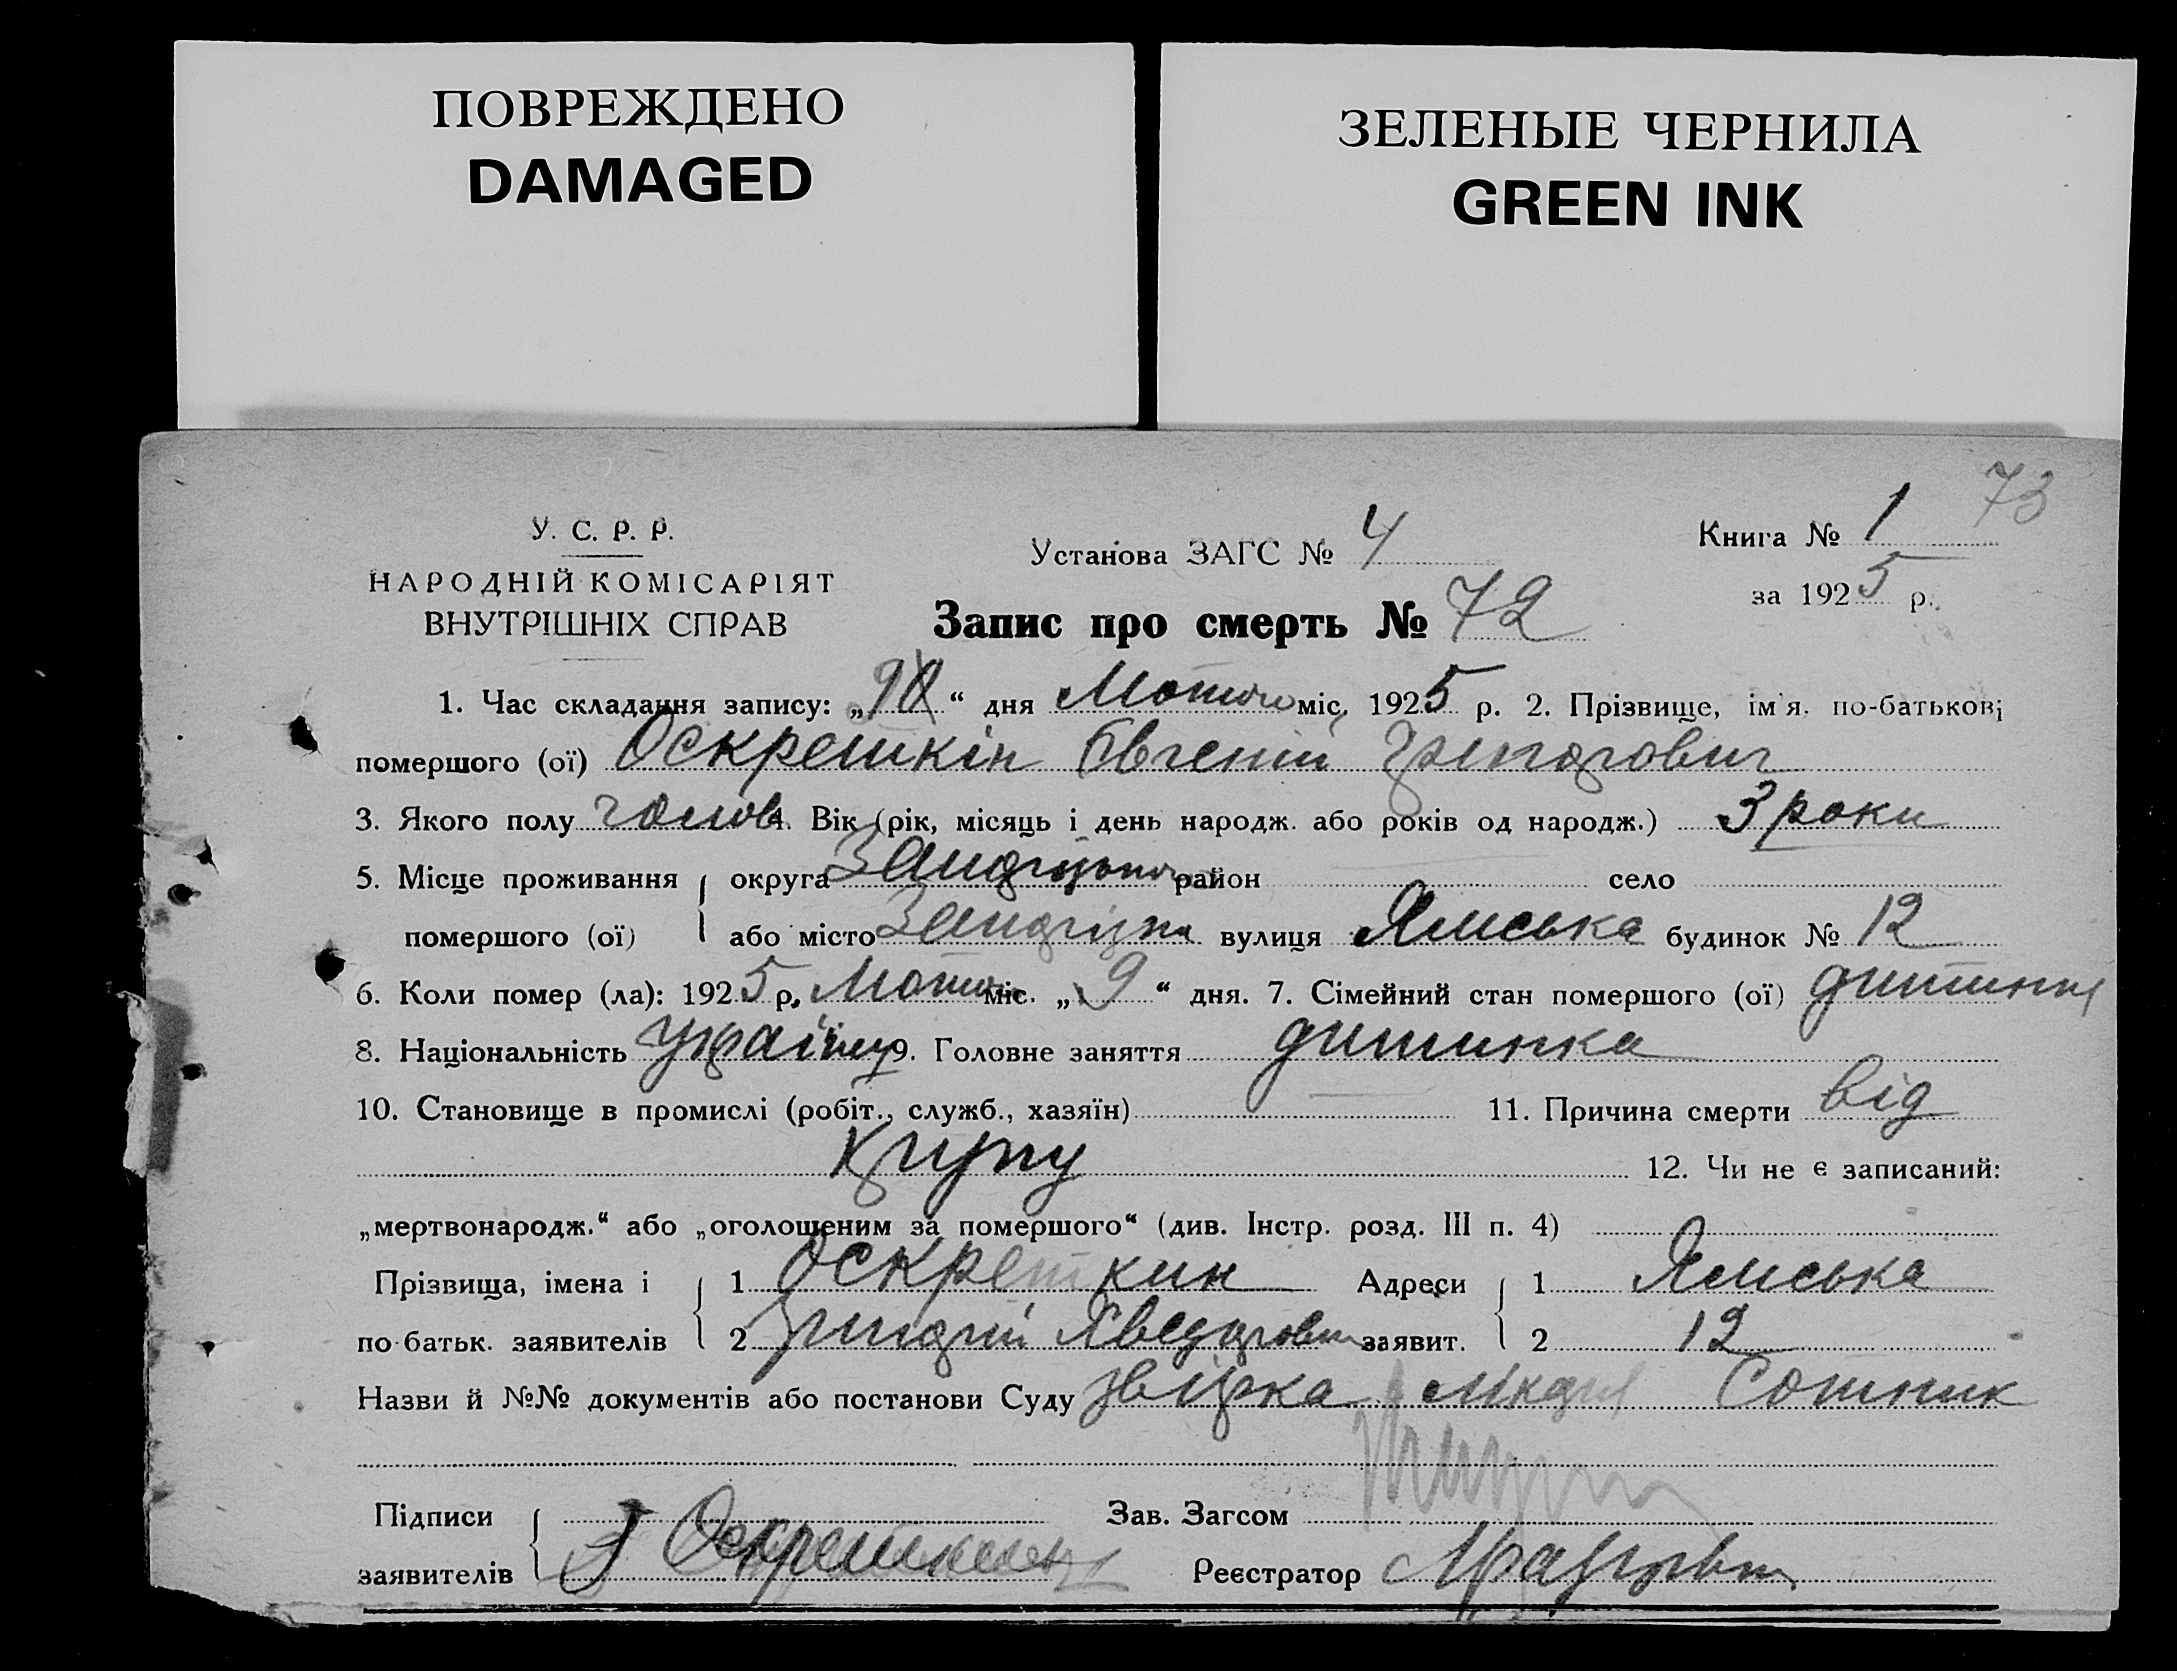 ПОВРЕЖДЕНО
DAMAGED
ЗЕЛЕНЫЕ ЧЕРНИЛА
GREEN INK
73
У. С. Р. Р.
НАРОДНІЙ КОМІСАРІЯТ
ВНУТРІШНІХ СПРАВ
Установа ЗАГС № 4
Книга № 1
за 1925 р.
Запис про смерть № 72
1. Час складання запису: „ “ дня Лютого міс. 1925 р. 2. Прізвище, ім'я, по-батькові
помершого (ої) Оскреткін Евгеній Григорович
3. Якого полу чолов 4. Вік (рік, місяць і день народж. або років од народж.) 3 роки
5. Місце проживання округа район село
помершого (ої) або місто Запоріжжя вулиця Ямська будинок № 12
6. Коли помер (ла): 1925 р. Лютого міс. „9“ дня. 7. Сімейний стан помершого (ої) дитинка
8. Національність 9. Головне заняття дитинка
10. Становище в промислі (робіт., служб., хазяїн) 11. Причина смерти від
крупу 12. Чи не є записаний:
„мертвонародж.“ або „оголошеним за помершого“ (див. Інстр. розд. III п. 4)
Прізвища, імена і 1 Оскреткин Адреси 1 Ямська
по-батьк. заявителів 2 Григорій заявит. 2 12
Назви й №№ документів або постанови Суду Сотник
Підписи Зав. Загсом
заявителів Оскреткин Реєстратор